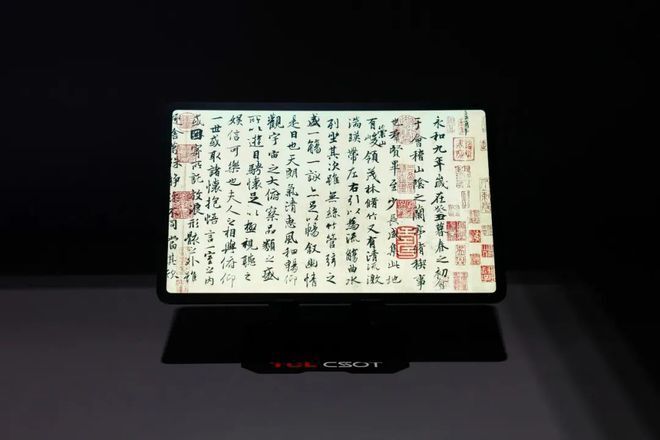 永和九年歲在癸丑暮春之初會
于會稽山陰之蘭亭脩稧事
也羣賢畢至少長咸集此地
有崇山峻領茂林脩竹又有清流激
湍暎帶左右引以為流觴曲水
列坐其次雖無絲竹管弦之
盛一觴一詠亦足以暢叙幽情
是日也天朗氣清惠風和暢仰
觀宇宙之大俯察品類之盛
所以遊目騁懷足以極視聽之
娛信可樂也夫人之相與俯仰
一世或取諸懷抱悟言一室之內
或因寄所託放浪形骸之外雖
趣舍萬殊靜躁不同當其欣
TCL CSOT